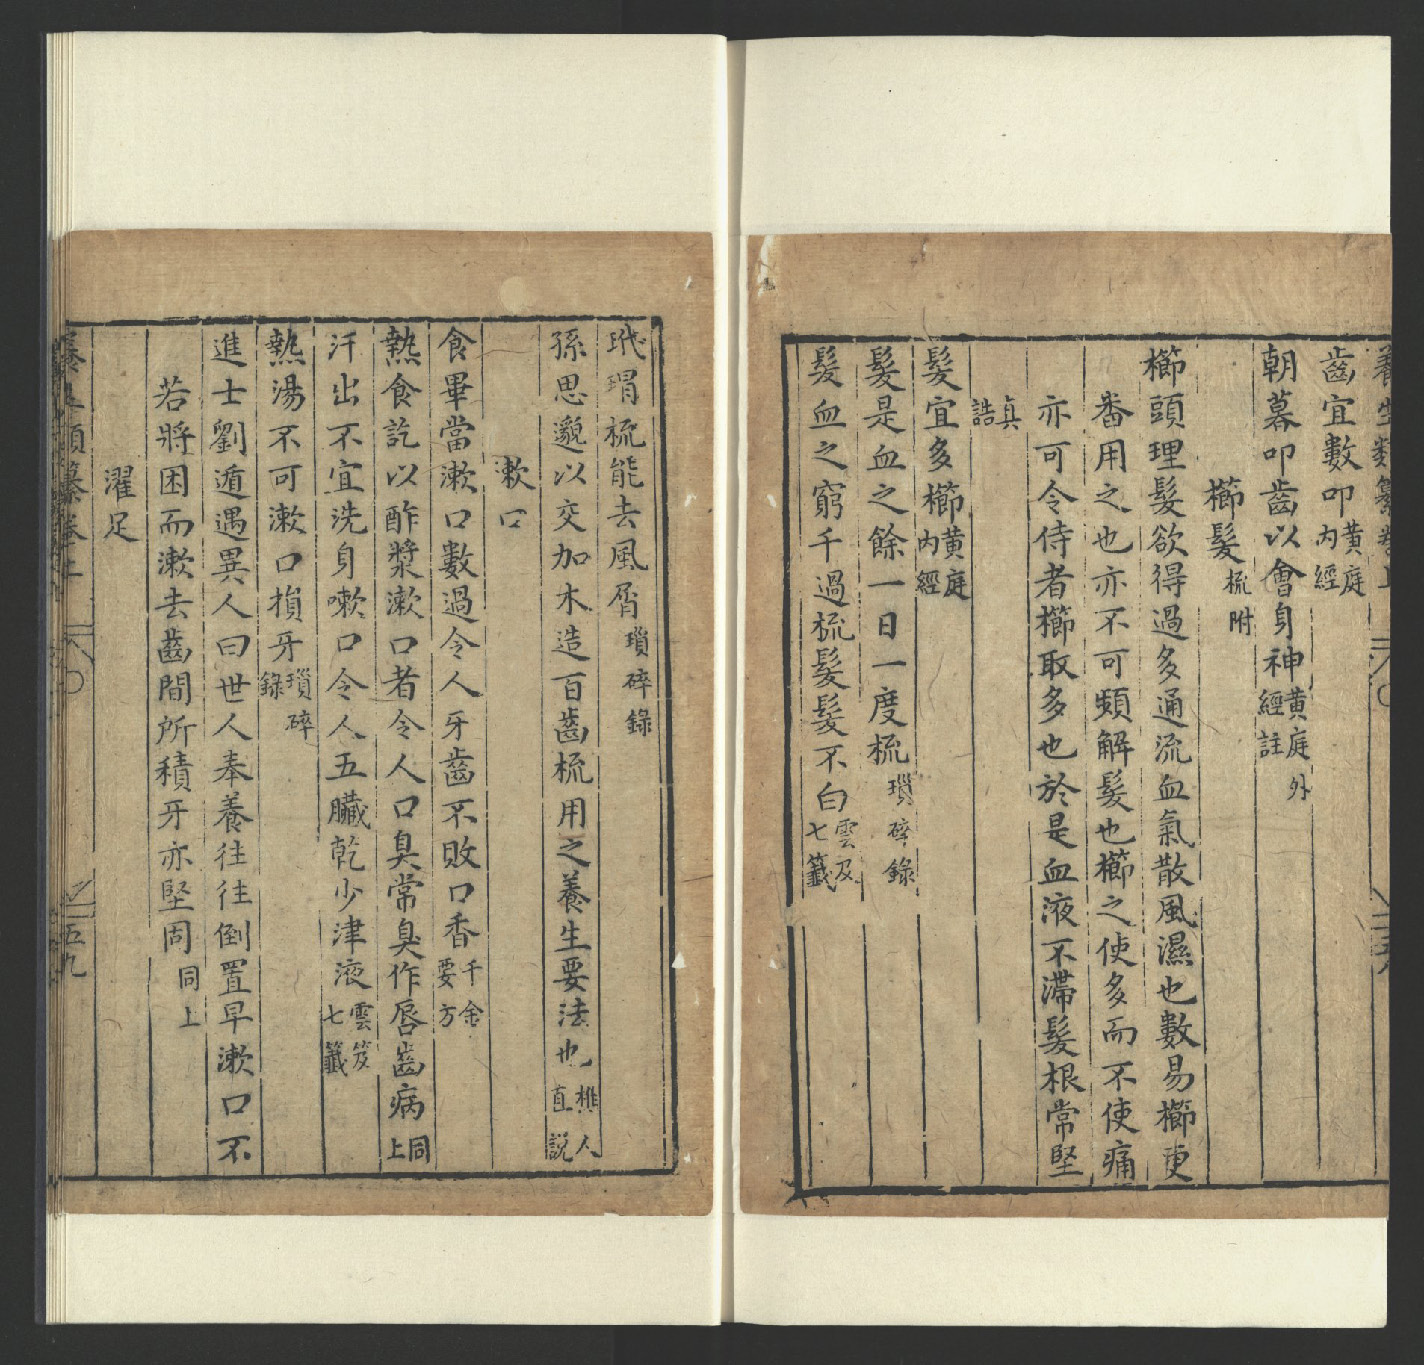 養生類纂卷上
齒宜數叩黃庭內經
朝暮叩齒以會身神黃庭外經註
櫛髮梳附
櫛頭理髮欲得過多通流血氣散風濕也數易櫛更
番用之也亦不可頻解髮也櫛之使多而不使痛
亦可令侍者櫛取多也於是血液不滯髮根常堅
真誥
髮宜多櫛黃庭內經
髮是血之餘一日一度梳瑣碎錄
髮血之窮千過梳髮髮不白雲及七籤
玳瑁梳能去風屑瑣碎錄
孫思邈以交加木造百齒梳用之養生要法也樵人直說
漱口
食畢當漱口數過令人牙齒不敗口香千金要方
熱食訖以酢漿漱口者令人口臭常臭作唇齒病同上
汗出不宜洗身嗽口令人五臟乾少津液雲笈七籤
熱湯不可漱口損牙瑣碎錄
進士劉遁遇異人曰世人奉養往往倒置早漱口不
若將困而漱去齒間所積牙亦堅固同上
濯足
養生類纂卷上
五九